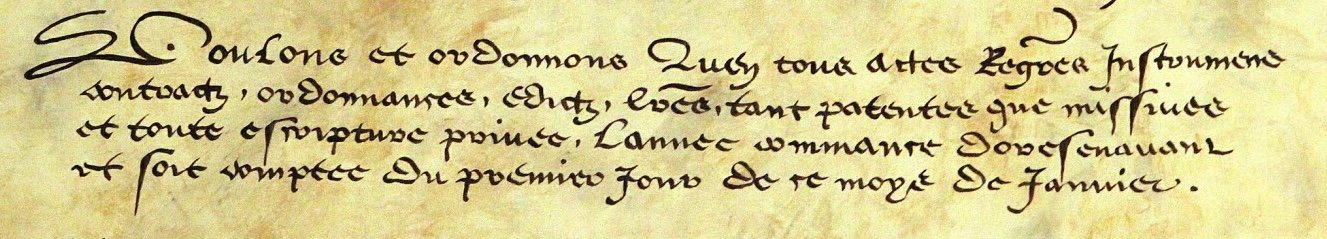 Voulons et ordonnons Quen tous actes Regr̃es Instrumens
contractz, ordonnances, edictz, lr̃es, tant patentes que missives
et toute escripture privee, Lannee commance doresenavant
et soit comptee du premier Jour de ce moys de Janvier.